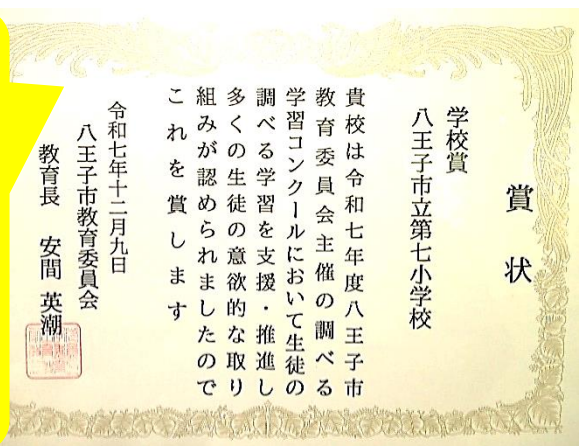 賞状
学校賞
八王子市立第七小学校
貴校は令和七年度八王子市
教育委員会主催の調べる
学習コンクールにおいて生徒の
調べる学習を支援・推進し
多くの生徒の意欲的な取り
組みが認められましたので
これを賞します
令和七年十二月九日
八王子市教育委員会
教育長 安間 英潮